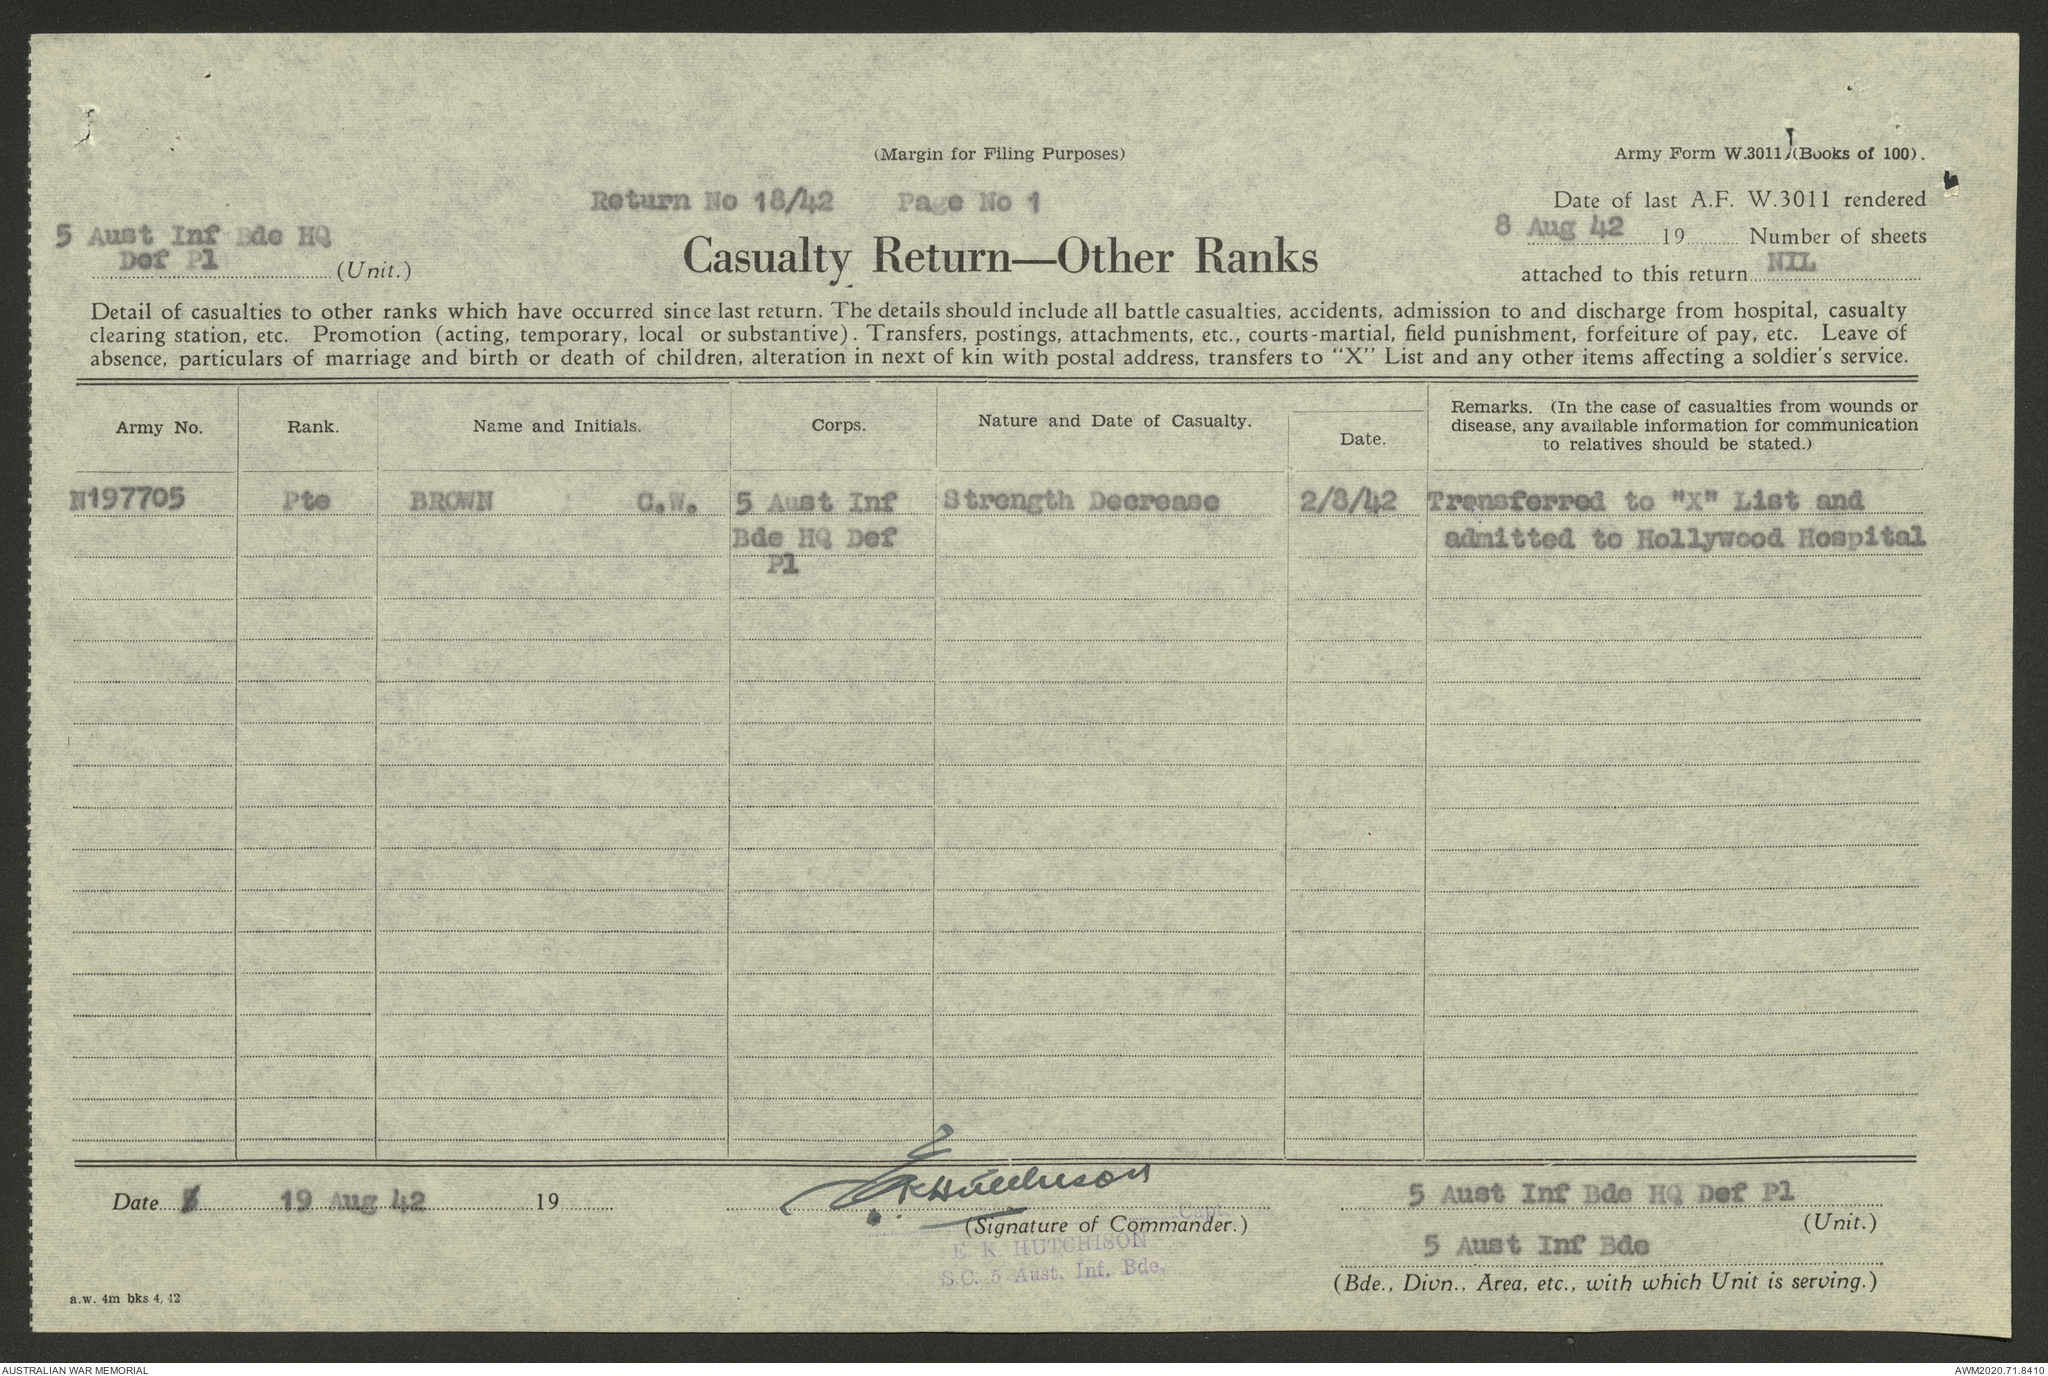 (Margin for Filing Purposes)
Army Form W.3011 (Books of 100).
Return No 18/42 Page No 1
Date of last A.F. W.3011 rendered
8 Aug 42 19 Number of sheets
attached to this return NIL
5 Aust Inf Bde HQ
Def Pl (Unit.)
Casualty Return—Other Ranks
Detail of casualties to other ranks which have occurred since last return. The details should include all battle casualties, accidents, admission to and discharge from hospital, casualty
clearing station, etc. Promotion (acting, temporary, local or substantive). Transfers, postings, attachments, etc., courts-martial, field punishment, forfeiture of pay, etc. Leave of
absence, particulars of marriage and birth or death of children, alteration in next of kin with postal address, transfers to "X" List and any other items affecting a soldier's service.
Army No. Rank. Name and Initials. Corps. Nature and Date of Casualty. Date. Remarks. (In the case of casualties from wounds or
disease, any available information for communication
to relatives should be stated.)
N197705 Pte BROWN C.W. 5 Aust Inf Strength Decrease 2/8/42 Transferred to "X" List and
Bde HQ Def admitted to Hollywood Hospital
Pl
Date 19 Aug 42 19
EKHutchison
Capt.
(Signature of Commander.)
E. K. HUTCHISON
S.C. 5 Aust. Inf. Bde.
5 Aust Inf Bde HQ Def Pl
(Unit.)
5 Aust Inf Bde
(Bde., Divn., Area, etc., with which Unit is serving.)
a.w. 4m bks 4, 42
AUSTRALIAN WAR MEMORIAL
AWM2020.71.8410